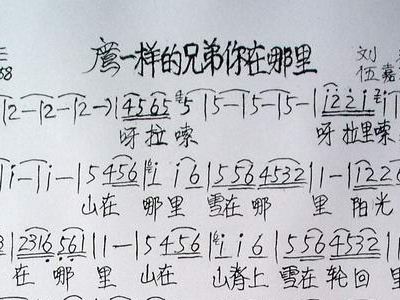 鹰一样的兄弟你在哪里
刘
58 伍嘉
|2-|2-|2-|4565 5|5-|5-|5-|i22i
呀拉嗦 呀拉里嗦
|i-|i-|5456|i i6|5564532|1-|i226
山在 哪里 雪在 哪 里 阳光
|2316561|1-|5456|i i6|5564532|1
在 哪 里 山在 山脊上 雪在轮回 里